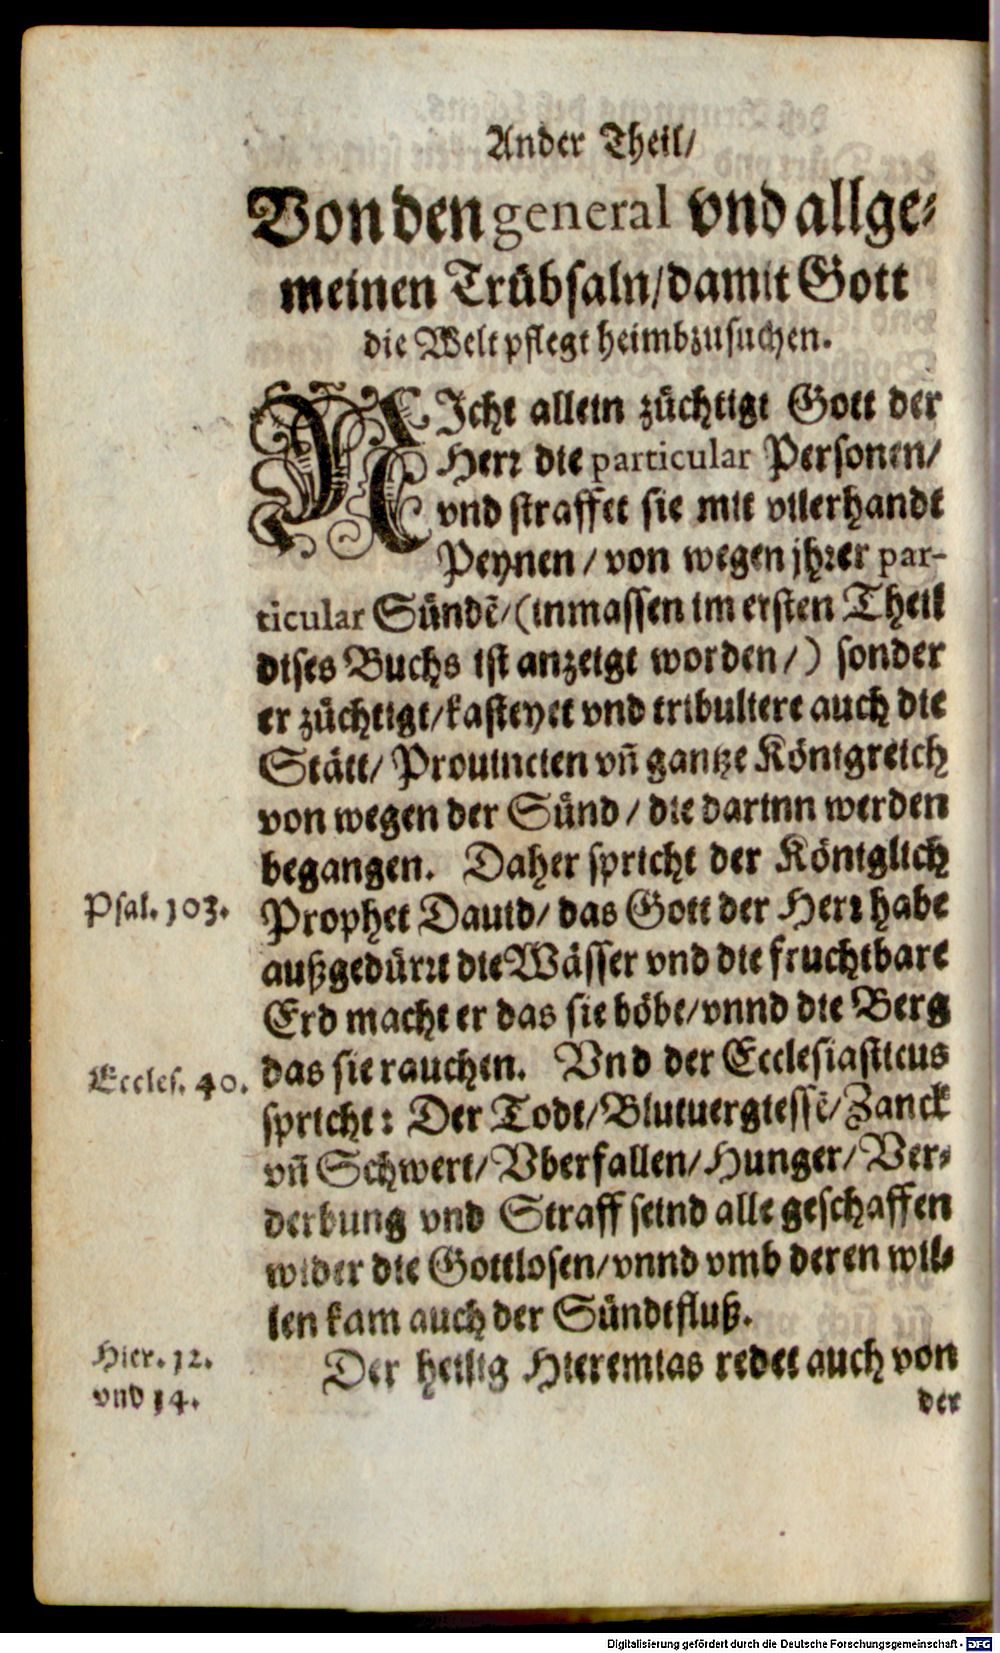 Ander Theil/
Von den general vnd allge-
meinen Trübsaln/damit Gott
die Welt pflegt heimbzusuchen.
NIcht allein züchtigt Gott der
Herr die particular Personen/
vnd straffet sie mit vilerhandt
Peynen/ von wegen jhrer par-
ticular Sündē/(inmassen im ersten Theil
dises Buchs ist anzeigt worden/) sonder
er züchtigt/kasteyet vnd tribuliere auch die
Stätt/ Prouincien vñ gantze Königreich
von wegen der Sünd/ die darinn werden
begangen. Daher spricht der Königlich
Psal. 103. Prophet Dauid/ das Gott der Herr habe
außgedürrt die Wässer vnd die fruchtbare
Erd macht er das sie böbe/vnnd die Berg
Eccles. 40. das sie rauchen. Vnd der Ecclesiasticus
spricht: Der Todt/Blutuergiessē/Zanck
vñ Schwert/Vberfallen/Hunger/Ver-
derbung vnd Straff seind alle geschaffen
wider die Gottlosen/vnnd vmb deren wil-
len kam auch der Sündtfluß.
Hier. 12. Der heilig Hieremias redet auch von
vnd 14. der
Digitalisierung gefördert durch die Deutsche Forschungsgemeinschaft - DFG